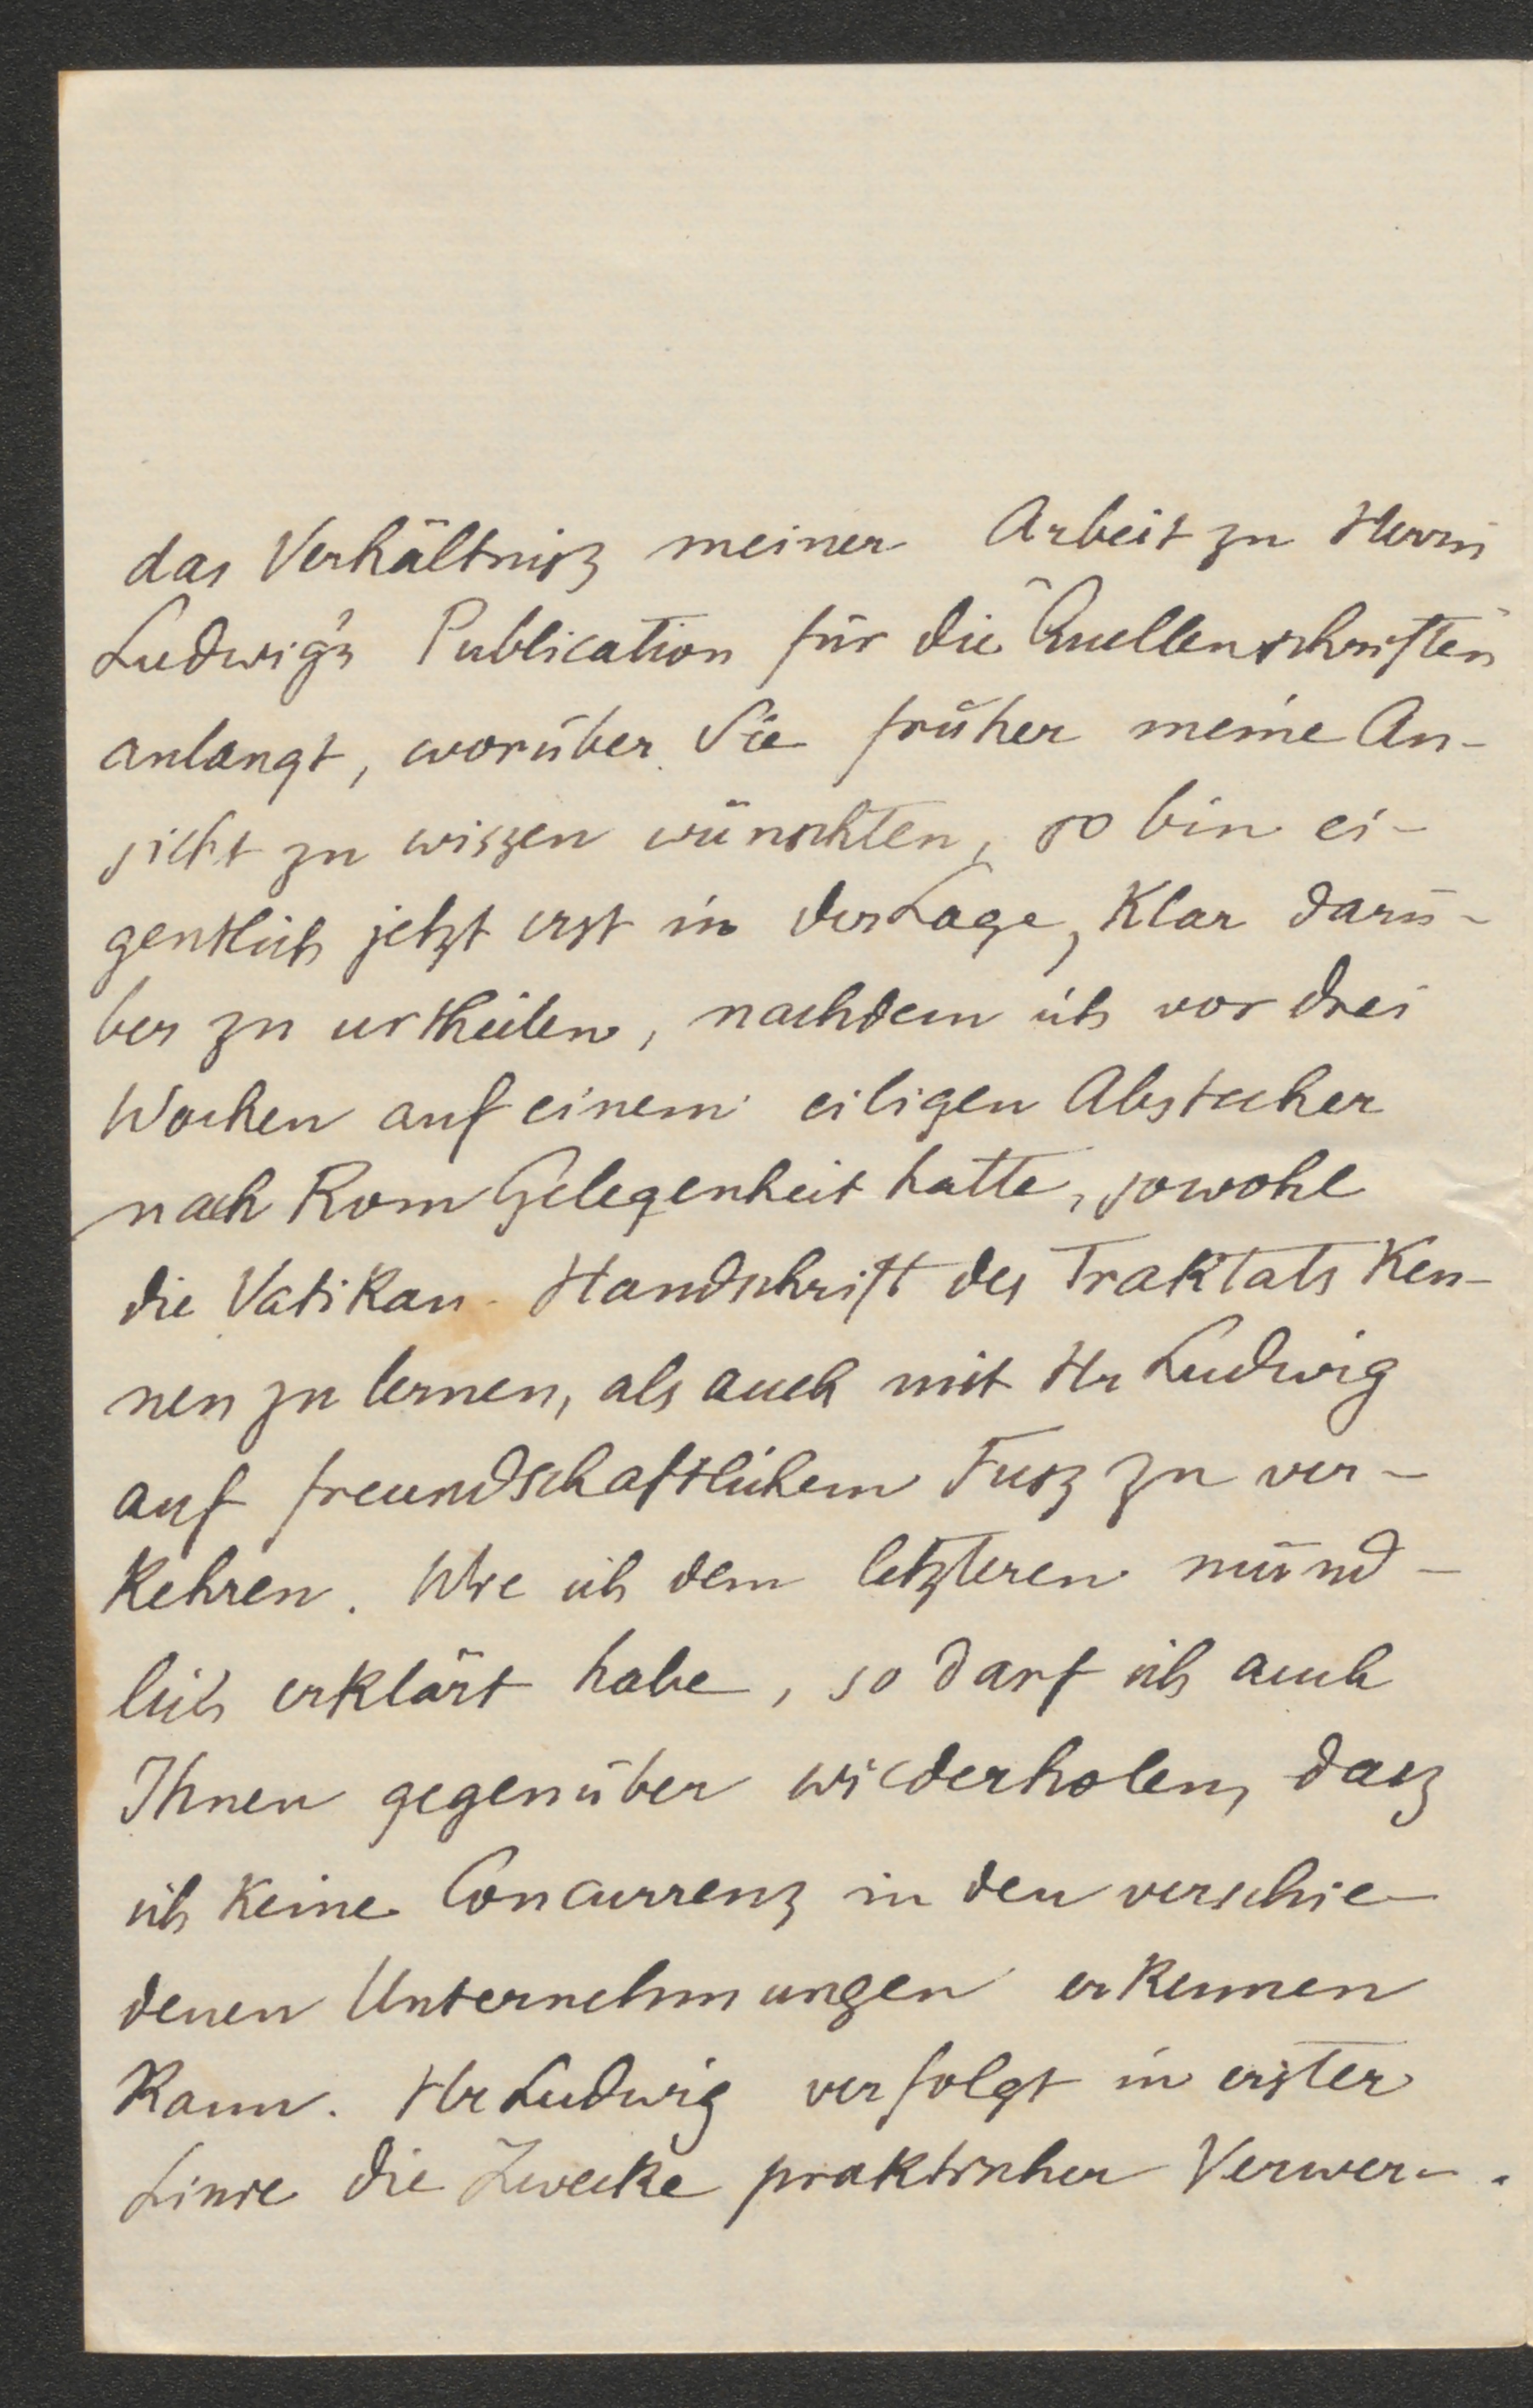 das Verhältnisz meiner Arbeit zu Herrn
Ludwig's Publication für die "Quellenschriften"
anlangt, worüber Sie früher meine An-
sicht zu wiszen wünschten, so bin ei-
gentlich jetzt erst in der Lage, klar darü-
ber zu urtheilen, nachdem ich vor drei
Wochen auf einem eiligen Abstecher
nach Rom Gelegenheit hatte, sowohl
die Vatikan-Handschrift des Traktats ken-
nen zu lernen, als auch mit Hr Ludwig
auf freundschaftlichem Fusz zu ver-
kehren. Wie ich dem letzteren münd-
lich erklärt habe, so darf ich auch
Ihnen gegenüber wiederholen, dasz
ich keine Concurrenz in den verschie-
denen Unternehmungen erkennen
kann. Hr Ludwig verfolgt in erster
Linie die Zwecke praktischer Verwer-